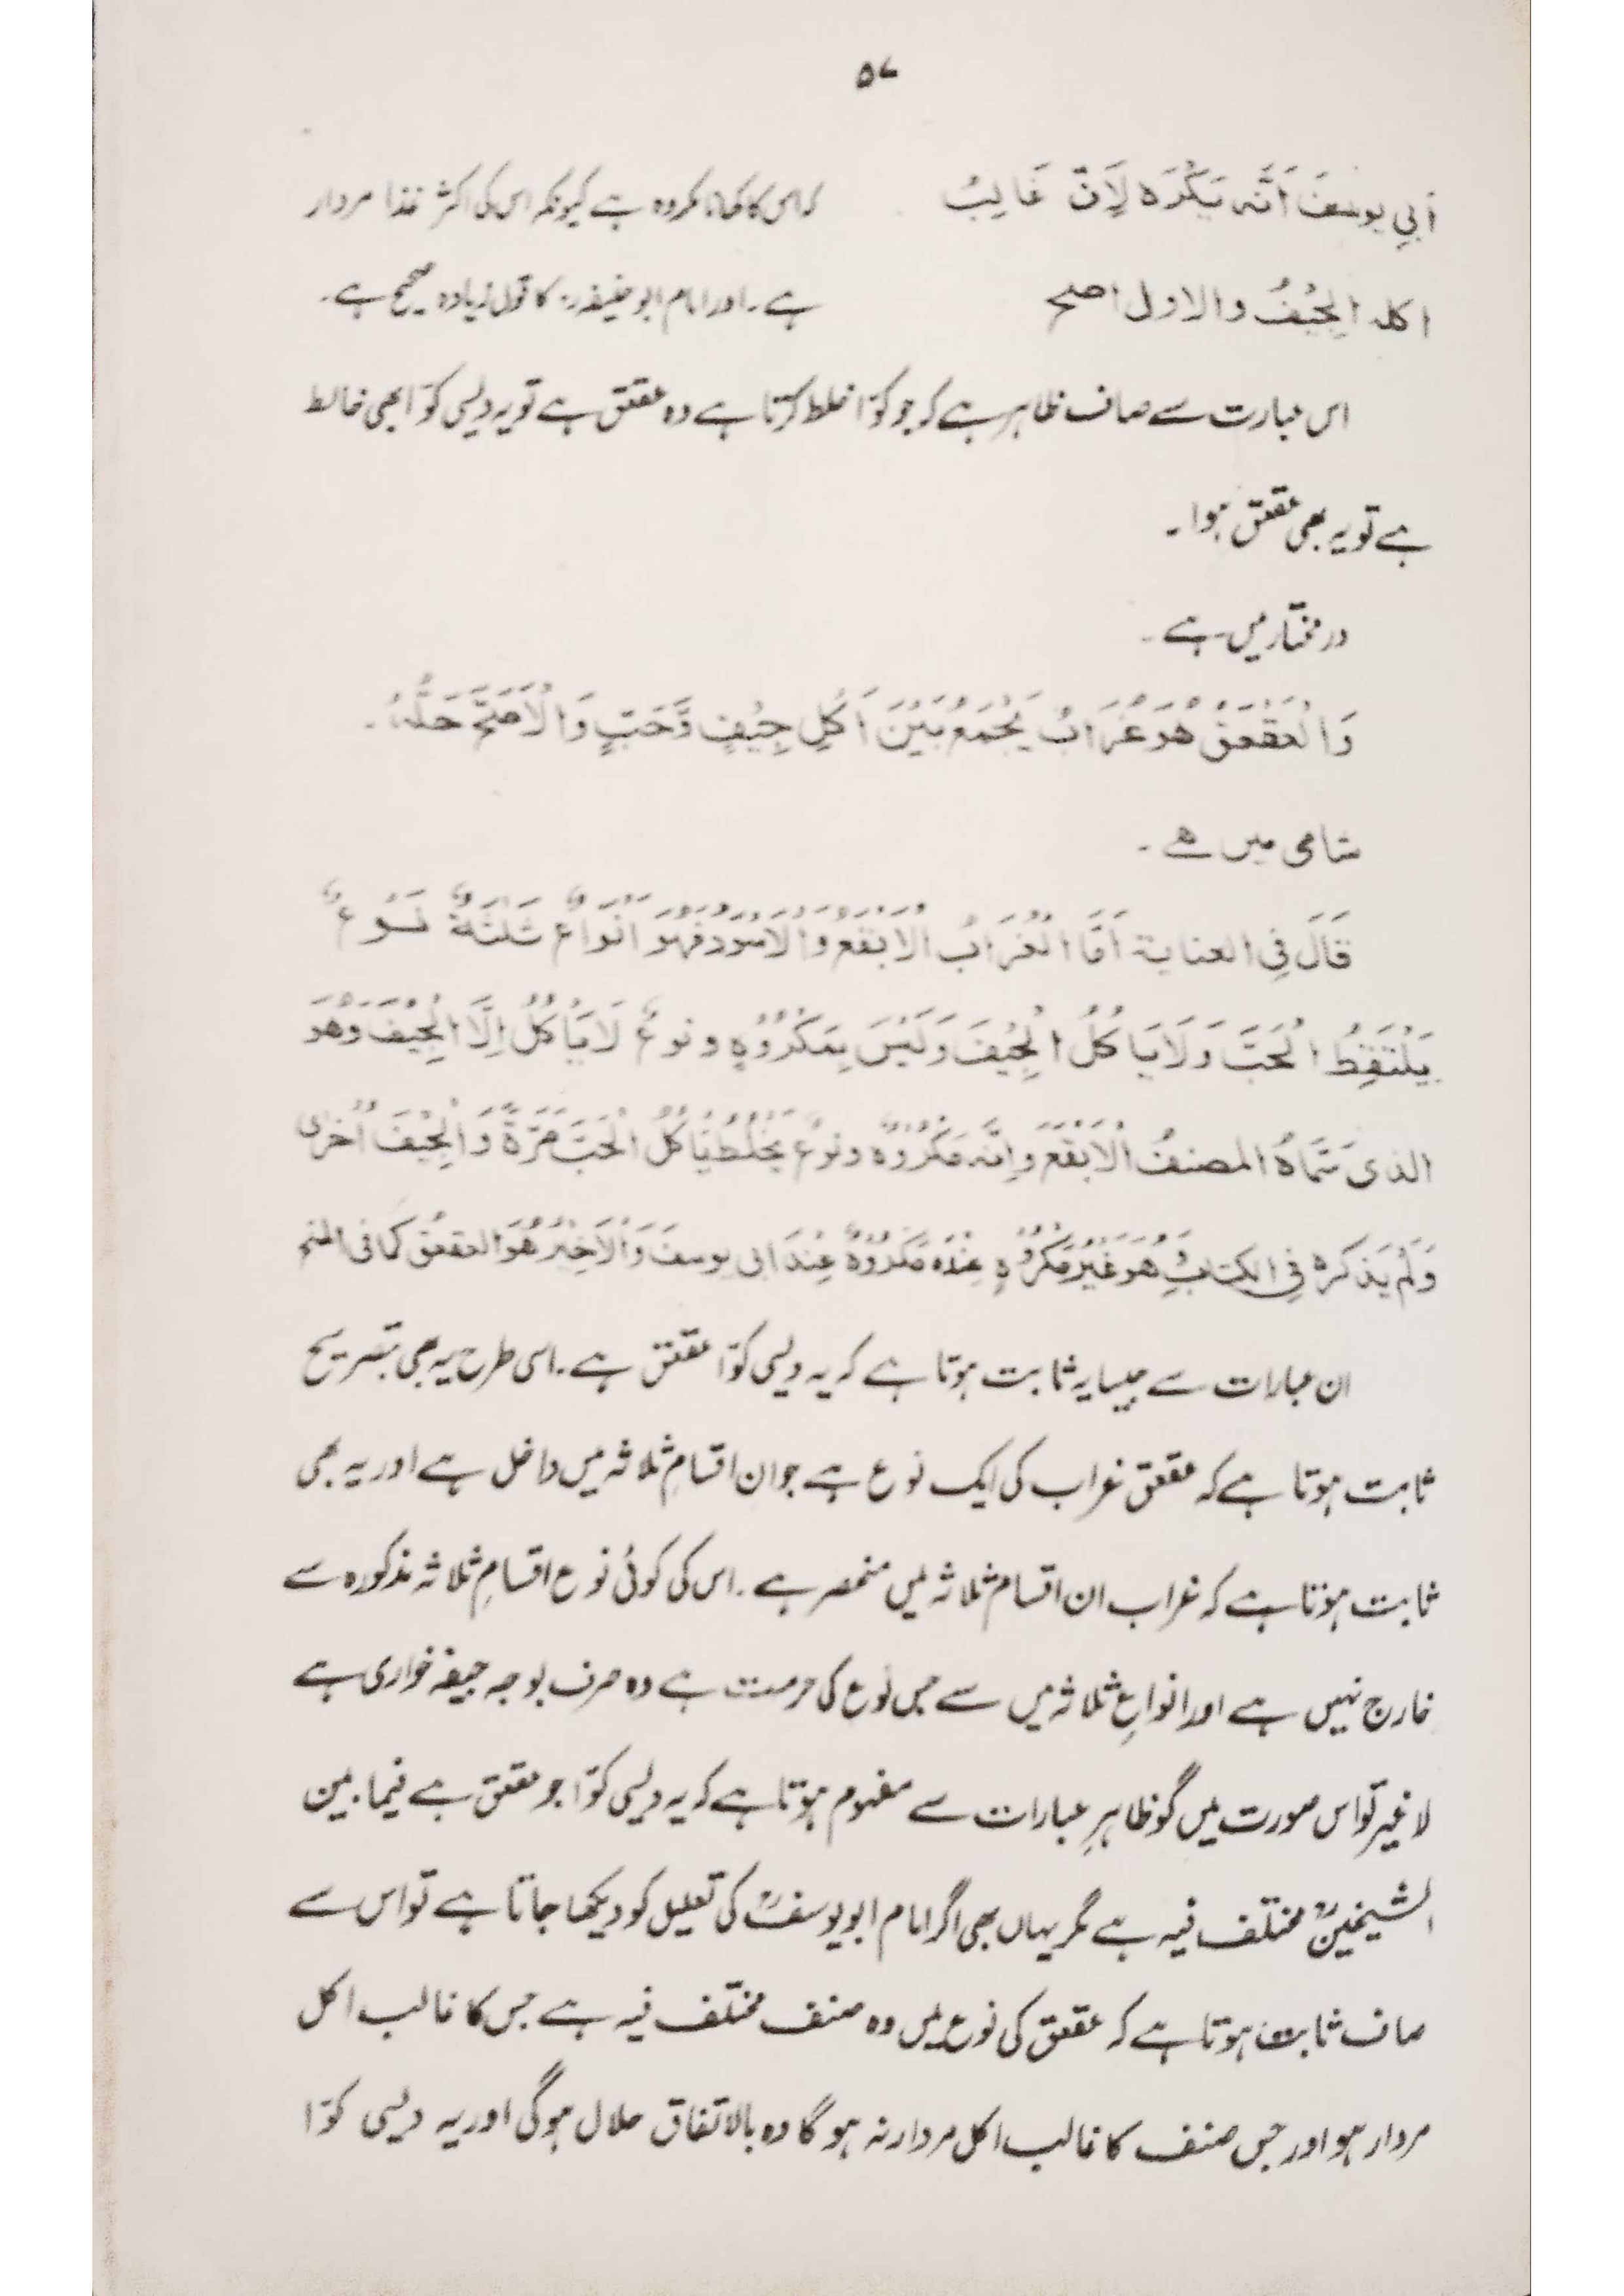 ۵۷
أَبِي يوسفَ اَنَّه يَكْرَه لِاَنَّ غَالِبُ
کہ اس کا کھانا مکروہ ہے کیونکہ اس کی اکثر غذا مردار
اكله الْجِيْفُ والاول اصح
ہے۔ اور امام ابو حنیفہؒ کا قول زیادہ صحیح ہے۔
اس عبارت سے صاف ظاہر ہے کہ جو کوّا خلط کرتا ہے وہ عقعق ہے تو یہ دیسی کوّا بھی خالط
ہے تو یہ بھی عقعق ہوا۔
در مختار میں ہے۔
وَالْعَقْعَقُ هُوَ غُرَابٌ يَجْمَعُ بَيْنَ اَكْلِ جِيْفٍ وَّحَبٍّ وَالْاَصَحُّ حَلُّهُ۔
شامی میں ہے۔
قَالَ فِی العنایة اَمَّا الْغُرَابُ الْاَبْقَعُ وَالْاَسْوَدُ فَهُوَ اَنْوَاعٌ ثَلٰثَةٌ نَوْعٌ
يَلْتَقِطُ الْحَبَّ وَلَا يَاْكُلُ الْجِيْفَ وَلَيْسَ بِمَكْرُوْهٍ ونوعٌ لَا يَاْكُلُ اِلَّا الْجِيْفَ وَهُوَ
الذی سَمَّاهُ المصنفُ الْاَبْقَعَ وَاِنَّه مَكْرُوْهٌ ونوعٌ يَخْلُطُ يَاْكُلُ الْحَبَّ مَرَّةً وَالْجِيْفَ اُخْرٰى
وَلَمْ يَذْكره فِی الكتابِ وَهُوَ غَيْرُ مَكْرُوْهٍ عِنْدَه مَكْرُوْهٌ عِنْدَ ابی یوسفَ وَالْاَخِيْرُ هُوَ العقعقُ كَمَا فی المنح
ان عبارات سے جیسا یہ ثابت ہوتا ہے کہ یہ دیسی کوّا عقعق ہے۔ اسی طرح یہ بھی بتصریح
ثابت ہوتا ہے کہ عقعق غراب کی ایک نوع ہے جو ان اقسامِ ثلاثہ میں داخل ہے اور یہ بھی
ثابت ہوتا ہے کہ غراب ان اقسام ثلاثہ میں منحصر ہے۔ اس کی کوئی نوع اقسامِ ثلاثہ مذکورہ سے
خارج نہیں ہے اور انواعِ ثلاثہ میں سے جس نوع کی حرمت ہے وہ صرف بوجہ جیفہ خواری ہے
لا غیر تو اس صورت میں گو ظاہرِ عبارات سے مفہوم ہوتا ہے کہ یہ دیسی کوّا جو عقعق ہے فیما بین
الشیخینؒ مختلف فیہ ہے مگر یہاں بھی اگر امام ابو یوسفؒ کی تعلیل کو دیکھا جاتا ہے تو اس سے
صاف ثابت ہوتا ہے کہ عقعق کی نوع میں وہ صنف مختلف فیہ ہے جس کا غالب اکل
مردار ہو اور جس صنف کا غالب اکل مردار نہ ہو گا وہ بالاتفاق حلال ہو گی اور یہ دیسی کوّا